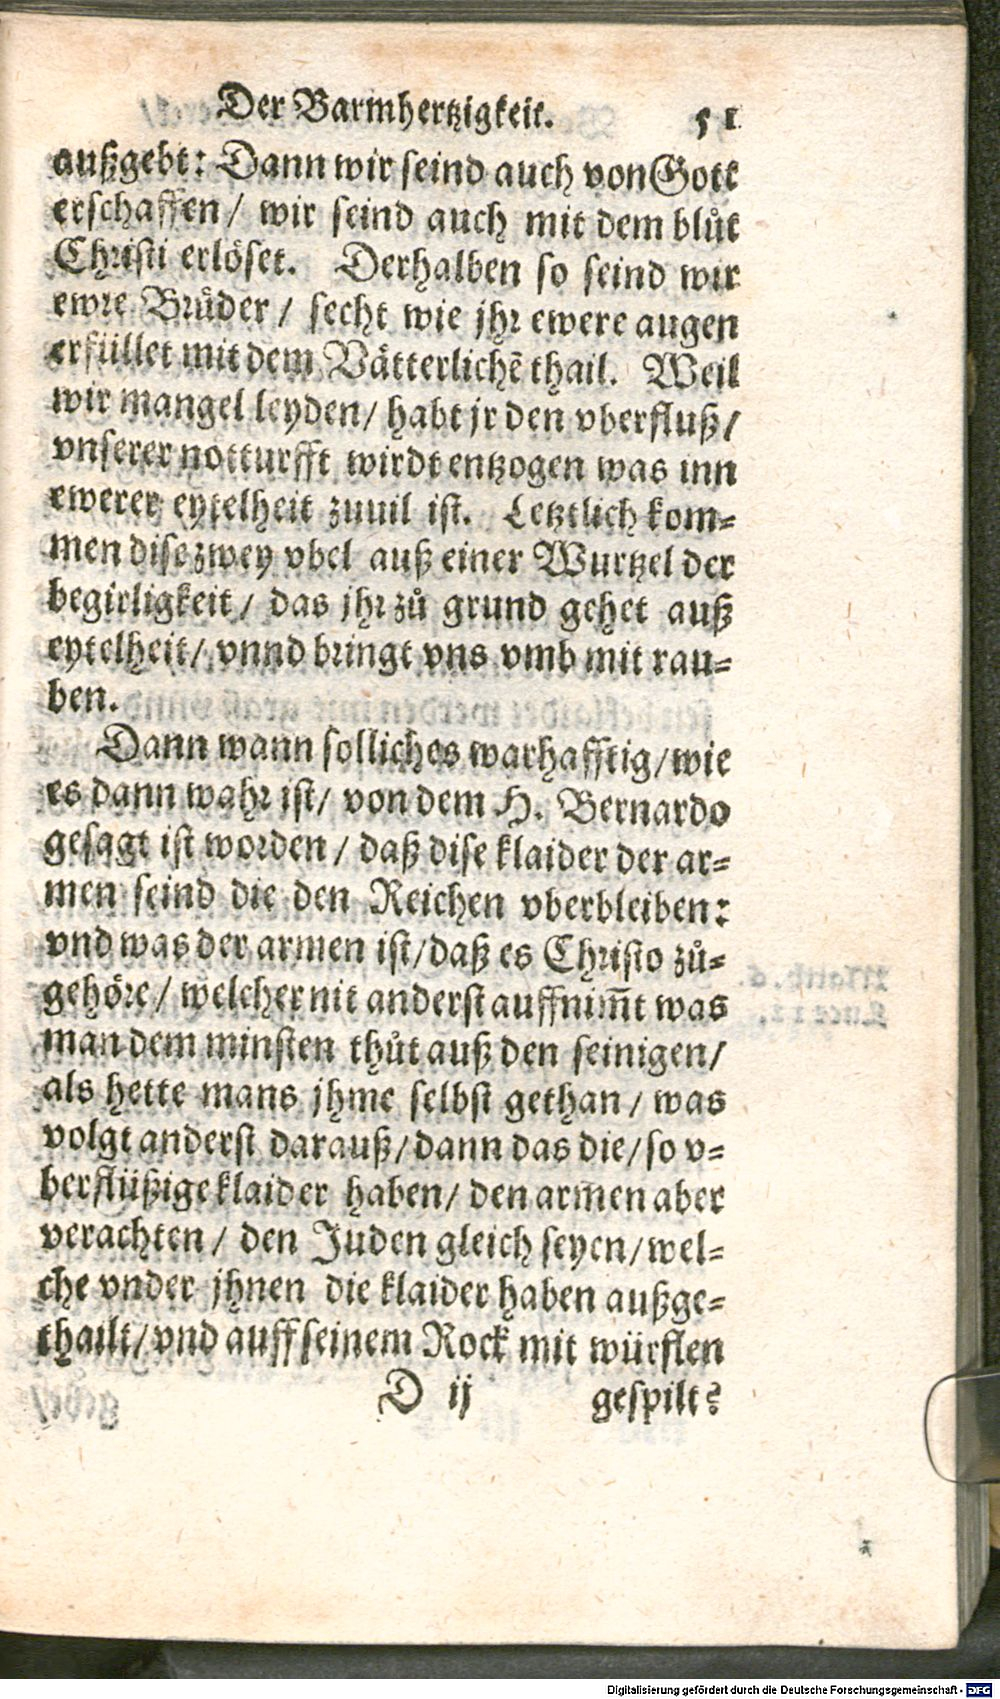 Der Barmhertzigkeit. 51
außgebt: Dann wir seind auch von Gott
erschaffen / wir seind auch mit dem blůt
Christi erlöset. Derhalben so seind wir
ewre Brüder / secht wie jhr ewere augen
erfüllet mit dem Vätterlichẽ thail. Weil
wir mangel leyden / habt jr den vberfluß /
vnserer notturfft wirdt entzogen was inn
ewerer eytelheit zuuil ist. Letztlich kom⸗
men dise zwey vbel auß einer Wurtzel der
begirligkeit / das jhr zů grund gehet auß
eytelheit / vnnd bringt vns vmb mit rau⸗
ben.
Dann wann solliches warhafftig / wie
es dann wahr ist / von dem H. Bernardo
gesagt ist worden / daß dise klaider der ar⸗
men seind die den Reichen vberbleiben:
vnd was der armen ist / daß es Christo zů⸗
gehöre / welcher nit anderst auffnim̃t was
man dem minsten thůt auß den seinigen /
als hette mans jhme selbst gethan / was
volgt anderst darauß / dann das die / so v⸗
berflüßige klaider haben / den armen aber
verachten / den Juden gleich seyen / wel⸗
che vnder jhnen die klaider haben außge⸗
thailt / vnd auff seinem Rock mit würflen
D ij gespilt?
Digitalisierung gefördert durch die Deutsche Forschungsgemeinschaft - DFG